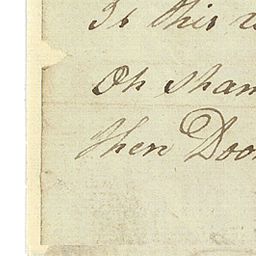 Is this
Oh sham
then Doo